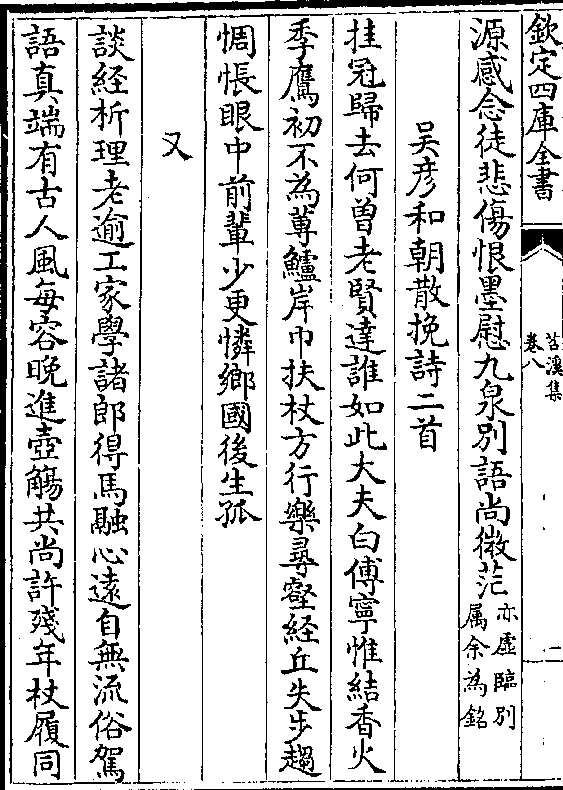 欽定四庫全書
苕溪集
卷八
二
源感念徒悲傷恨墨慰九泉別語尚微茫亦虛臨別
属余為銘
吴彦和朝散挽詩二首
挂冠歸去何曽老賢達誰如此大夫白傅寧惟結香火
季鷹初不為蓴鱸岸巾扶杖方行樂尋壑經丘失步趨
惆悵眼中前輩少更憐鄉國後生孤
又
談經析理老逾工家學諸郎得馬融心遠自無流俗駕
語真端有古人風每容晚進壺觴共尚許殘年杖履同